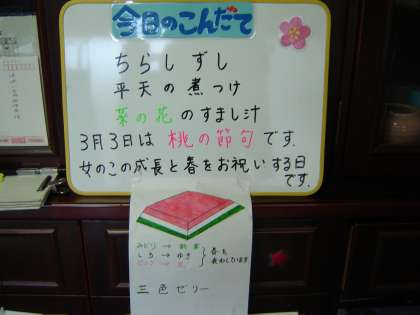 今日のこんだて
ちらしずし
平天の煮つけ
菜の花のすまし汁
3月3日は桃の節句です。
女のこの成長と春をお祝いする日
です。
みどり→新芽
しろ→ゆき
ピンク→花
春を
表わしています
三色ゼリー